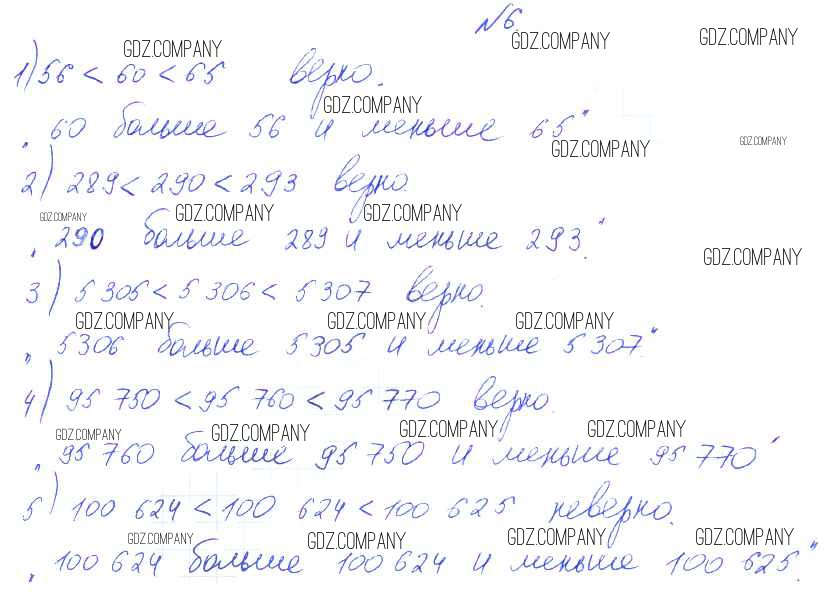 №6.
GDZ.COMPANY GDZ.COMPANY GDZ.COMPANY
1) 56 < 60 < 65 верно.
GDZ.COMPANY
„60 больше 56 и меньше 65"
GDZ.COMPANY GDZ.COMPANY
2) 289 < 290 < 293 верно.
GDZ.COMPANY GDZ.COMPANY GDZ.COMPANY
„290 больше 289 и меньше 293."
GDZ.COMPANY
3) 5 305 < 5 306 < 5 307 верно.
GDZ.COMPANY GDZ.COMPANY GDZ.COMPANY
„5306 больше 5305 и меньше 5307."
4) 95 750 < 95 760 < 95 770 верно.
GDZ.COMPANY GDZ.COMPANY GDZ.COMPANY GDZ.COMPANY
„95 760 больше 95 750 и меньше 95 770"
5) 100 624 < 100 624 < 100 625 неверно.
GDZ.COMPANY GDZ.COMPANY GDZ.COMPANY GDZ.COMPANY
„100 624 больше 100 624 и меньше 100 625."